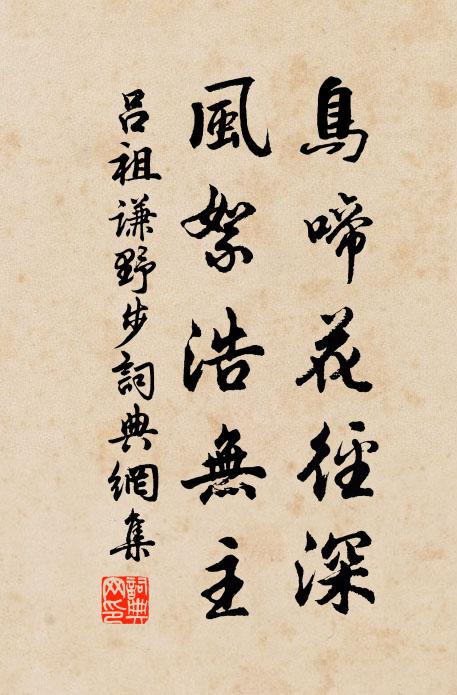 鳥啼花徑深
風絮浩無主
呂祖謙野步詞典網集
詞典網印